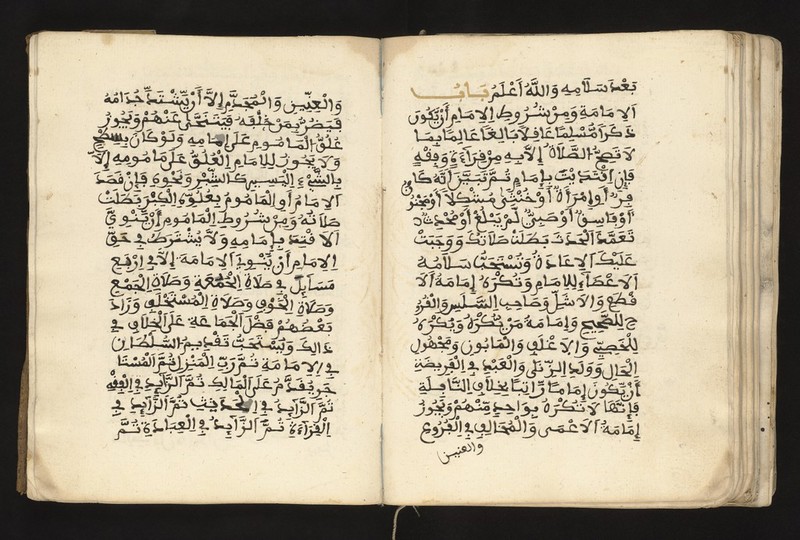 بعد سلامه والله أعلم باب
الإمامة ومن شروط الإمام أن يكون
ذكرا مسلما عاقلا بالغا عالما بما
لا تصح الصلاة إلا به من قراءة وفقه
فإن اقتديت بإمام ثم تبين أنه كان
فر أو امرأة أو خنثى مشكلا أو مجنون
أو فاسق أو صبي لم يبلغ أو محدث
تعمد الحدث بطلت صلاتك ووجبت
عليك الإعادة وتستحب سلامة
الأعضاء للإمام وتكره إمامة الأ
قطع والأشل وصاحب السلس والقرو
ح للصحيح وإمامة من يكره ويكره
للخصي والأغلف والمأبون ومجهول
الحال وولد الزنى والعبد في الفريضة
أن يكون إماما راتبا بخلاف النافلة
فإنها لا تكره بواحد منهم ويجوز
إمامة الأعمى والمخالف في الفروع
والعنين
والعنين والمجذم إلا أن يشتد جذامه
فيضر بمن خلفه فيتنحى عنهم ويجوز
علو المأموم على إمامه ولو كان بسطح
ولا يجوز للإمام العلو على مأمومه إلا
بالشيء اليسير كالشبر ونحوه فإن قصد
الإمام أو المأموم بعلوه الكبر بطلت
صلاته ومن شروط المأموم أن ينوي
الاقتداء بإمامه ولا يشترط في حق
الإمام أن ينوي الإمامة إلا في أربع
مسايل في صلاة الجمعة وصلاة الجمع
وصلاة الخوف وصلاة المستخلف وزاد
بعضهم فضل الجماعة على الخلاف في
ذالك ويستحب تقديم السلطان
في الإمامة ثم رب المنزل ثم المستا
جر يقدم على المالك ثم الزايد في الفقه
ثم الزايد في الحديث ثم الزايد في
القراءة ثم الزايد في العبادة ثم